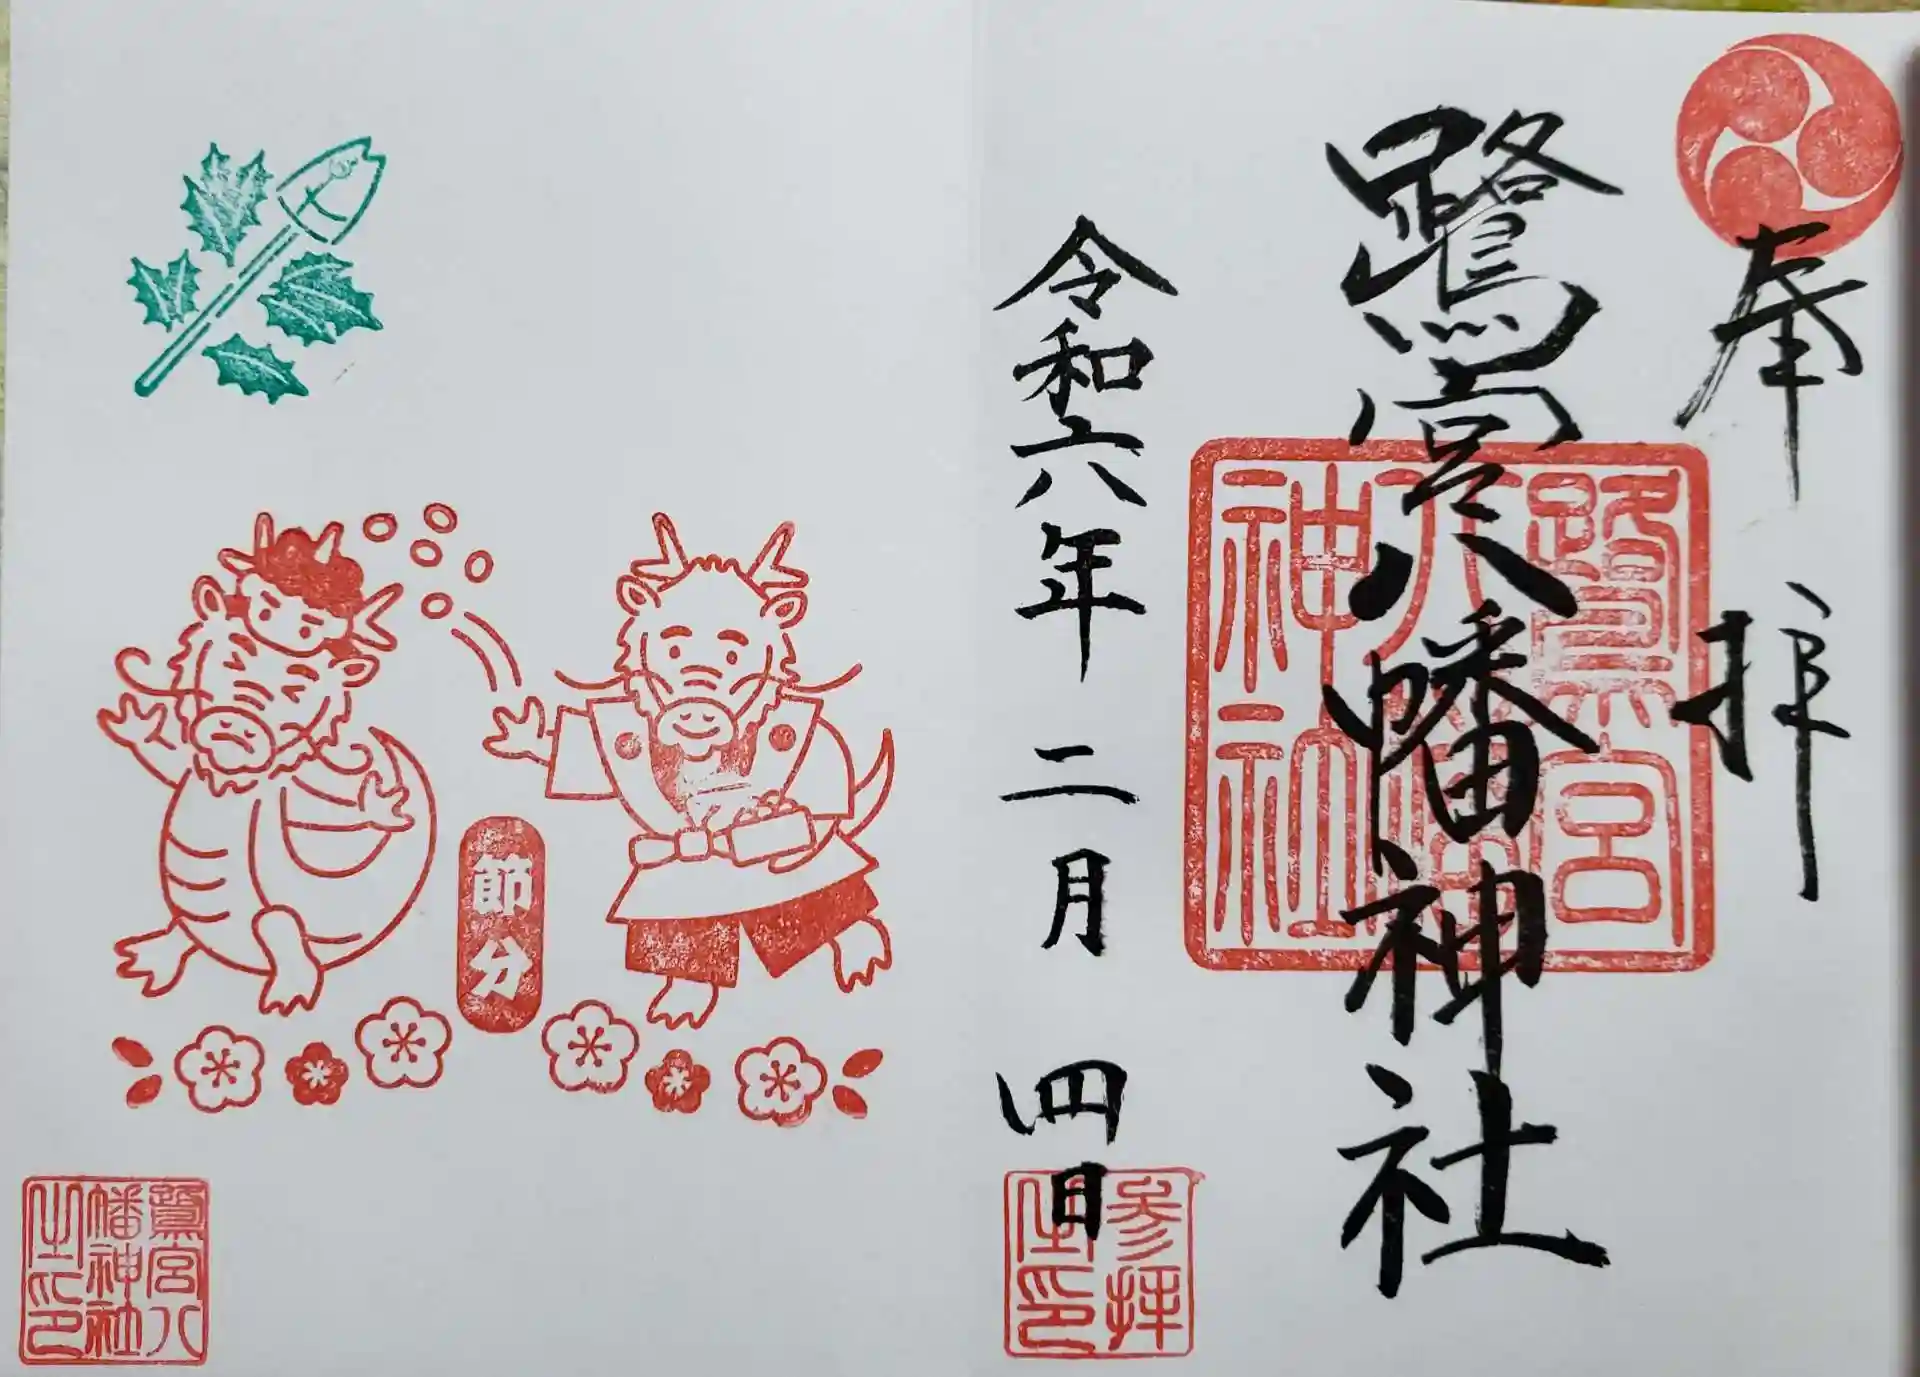 奉拝
鷺宮八幡神社
鷺宮
八幡
神社
令和六年二月四日
参拝
之印
節分
鷺宮八
幡神社
之印